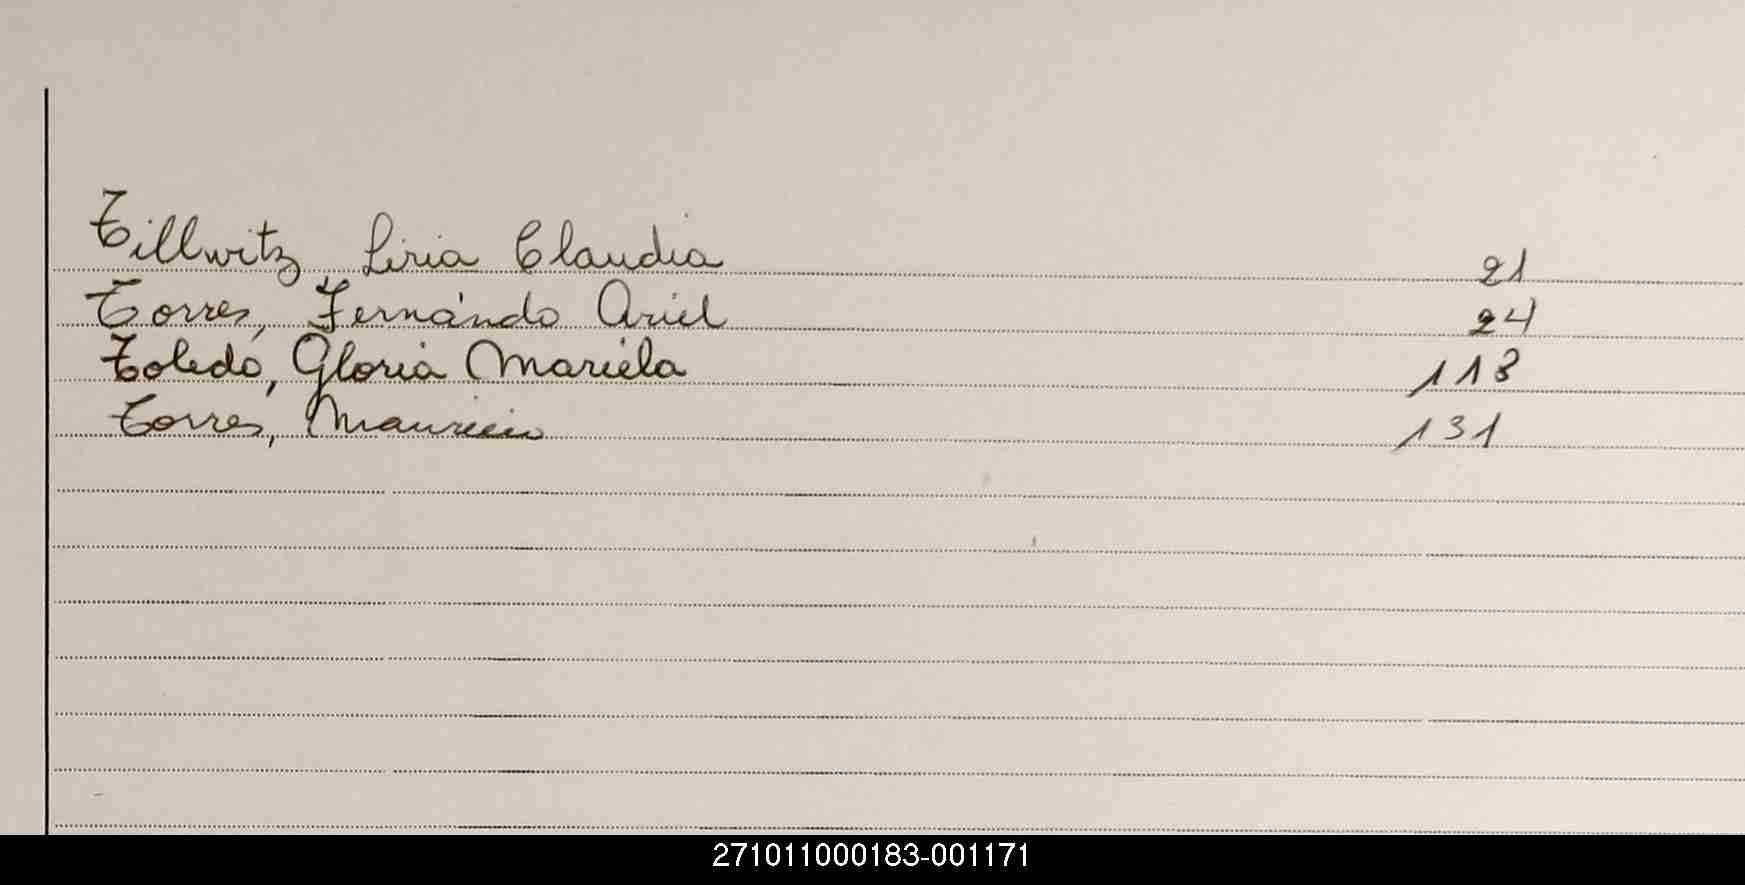 Tillwitz, Liria Claudia 21
Torres, Fernándo Ariel 24
Toledo, Gloria Mariela 113
Torres, Mauricio 131
271011000183-001171